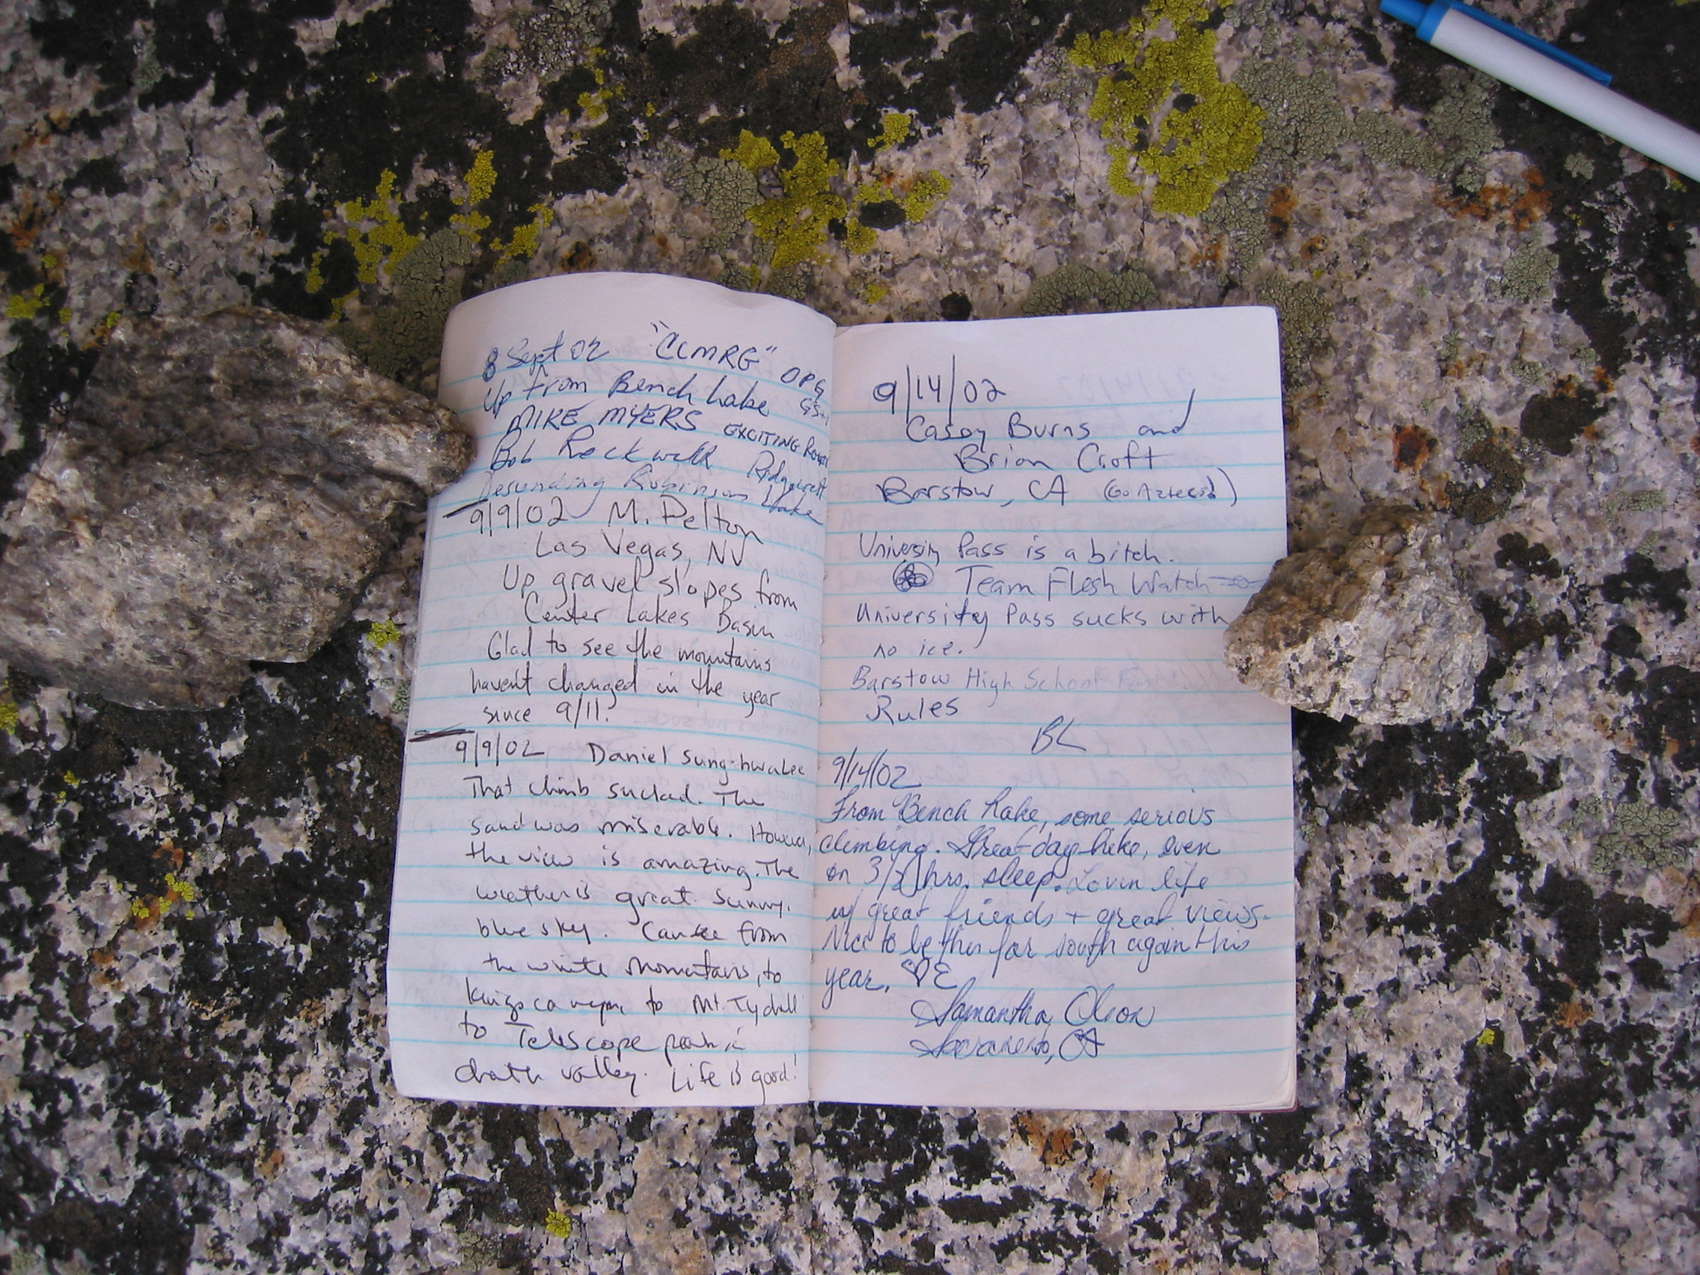 8 Sept 02 "CLMRG"
Up from Bench Lake
MIKE MYERS EXCITING
Bob Rockwell Ridgecrest
Descending Robinson Lake
9/9/02 M. Pelton
Las Vegas, NV
Up gravel slopes from
Center Lakes Basin
Glad to see the mountains
haven't changed in the year
since 9/11.
9/9/02 Daniel Sung-hwa Lee
That climb sucked. The
sand was miserable. However,
the view is amazing. The
weather is great. Sunny.
blue sky. from
the white mountains, to
kings canyon to Mt. Tyndall
to Telescope peak in
death valley. Life is good!
9/14/02
Casey Burns and
Brian Croft
Barstow, CA (Go Aztecs!)
University Pass is a bitch.
Team Flesh Watch
University Pass sucks with
no ice.
Barstow High School
Rules
BC
9/14/02
From Bench Lake, some serious
climbing. Great day hike, even
on 3 1/2 hrs. sleep. Lovin life
w/ great friends + great views.
Nice to be this far south again this
year. ♡E
Samantha Olson
Sacramento, CA